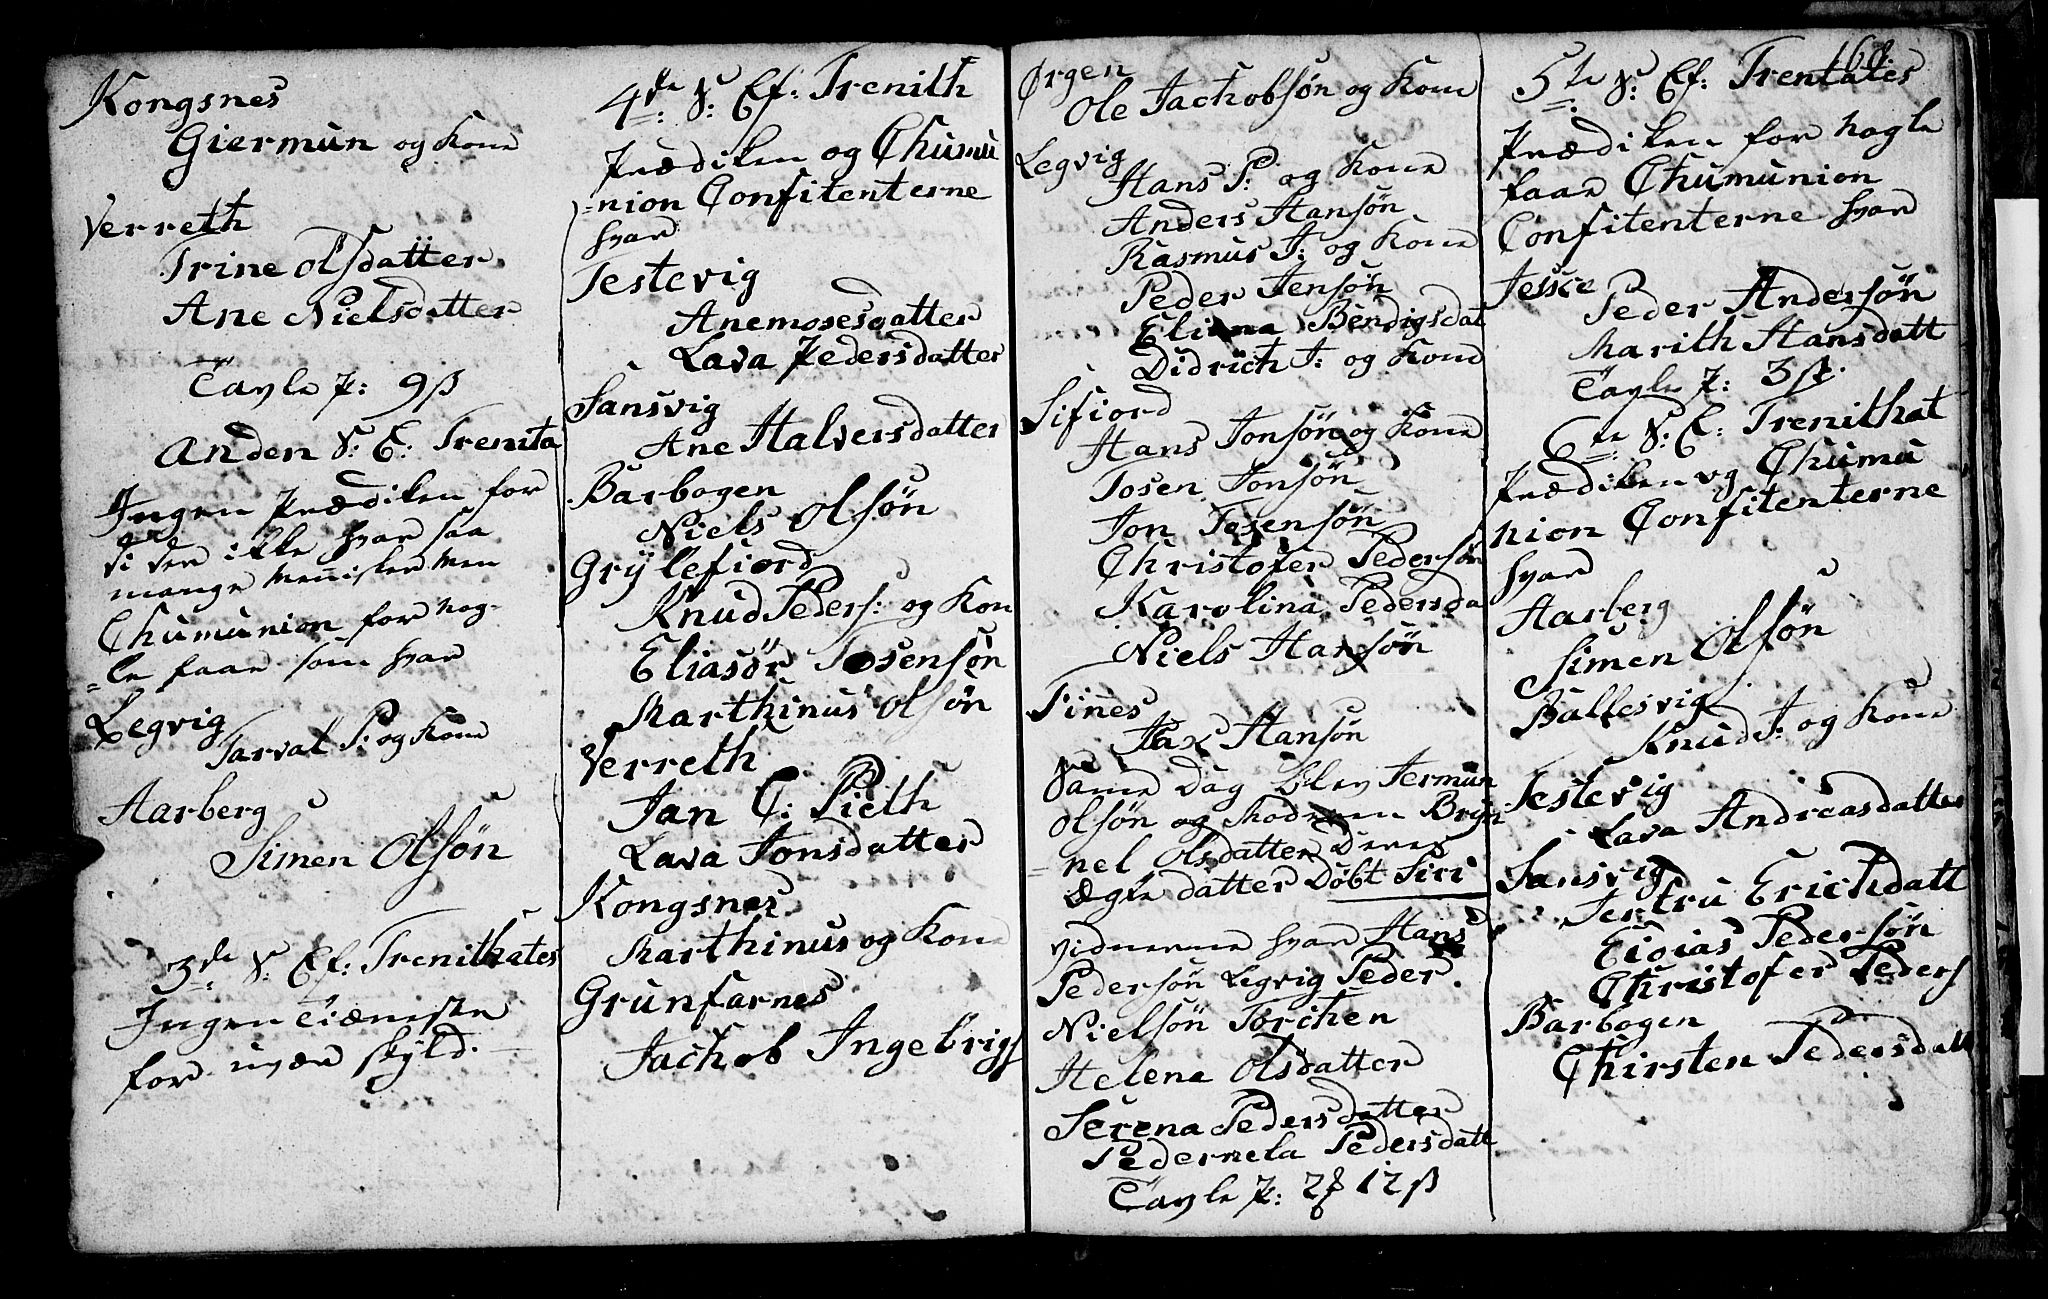 Kongsnes
Giermun og Kone
Verreth
Trine Olsdatter
Ane Nielsdatter
Tavle P: 9 ß
Anden S: E: Trenita
Ingen Prædiken for
di der ikke hvar saa
mange Mennisker Men
Chumunion for nog-
=le faae som hvar
Legvig
Tarval P: og Kone
Aarberg
Simen Olsön
3de S: Ef: Trenithates
Ingen Tiæniste
for uvær skyld.
4de S: Ef: Trenith
Prædiken og Chumu
=nion Confitenterne
hvar
Testevig
Anemosesdatter
Lava Pedersdatter
Sansvig
Ane Halversdatter
Barbogen
Niels Olsön
Gryllefiord
Knud Peders: og Kon
Eliasör Tosensön
Marthinus Olsön
Verreth
Jan C: Lieth
Lava Jonsdatter
Kongsnes
Marthinus og Kone
Grunfarnes
Jachob Ingebrigs
Ørgen
Ole Jachobsön og Kone
Legvig
Hans P: og Kone
Anders Hansön
Rasmus J: og Kone
Peder Jensön
Eliana Bendigsdat
Didrich J: og Kone
Sifiord
Hans Jonsön og Kone
Tosen Jonsön
Jon Tosensön
Christofer Pedersön
Karolina Pedersda
Niels Hansön
Fines
Jax Hansön
Same Dag blev Jermun
Olsön og Moderen Bryn
=nel Olsdatter Deres
Ægte datter Döbt Siri
vidnerne hvar Hans
Pedersön Legvig Peder
Nielsön Torchen
Helena Olsdatter
Serena Pedersdatter
Pedernela Pedersdatt
Tavle P: 2 12 ß
168
5te S: Ef: Trentates
Prædiken for nogle
faae Chumunion
Confitenterne hvar
Jessie
Peder Andersön
Marith Hansdatt
Tavle P: 3 ß.
6te S: E: Trenithat
Prædiken og Chumu
nion Confitenterne
hvar
Aarberg
Simen Olsön
Ballesvig
Knud J: og Kone
Testevig
Lava Andreasdatter
Sansvig
Jertru Erichdatt
Eigias Pedersön
Christofer Peders
Barbogen
Chirsten Pedersdatt